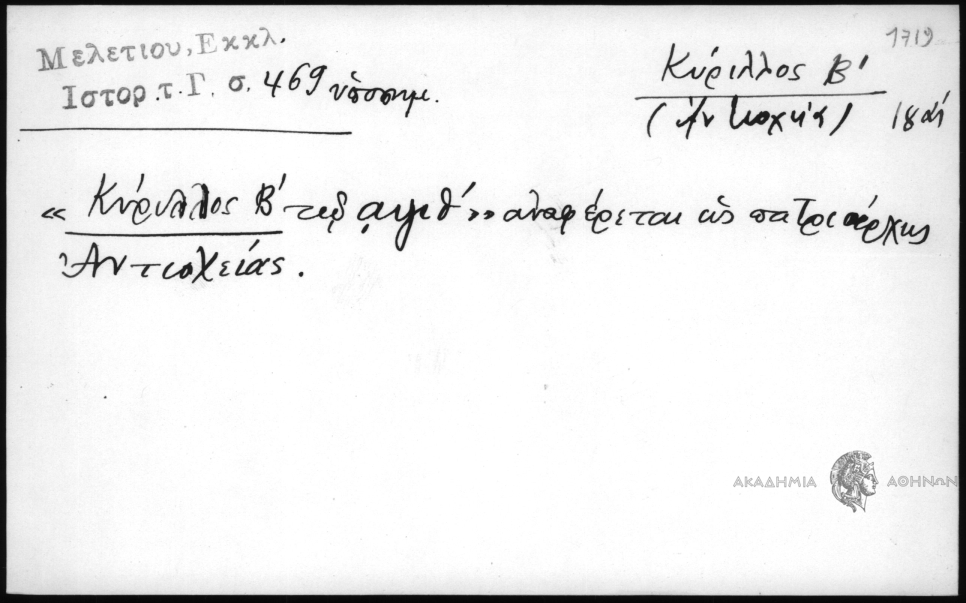 Μελετίου, Εκκλ.
Ιστορ. τ. Γ. σ. 469 ὑποσημ.
1719
Κύριλλος Β'
(Ἀντιοχεία) 18 αἰ
« Κύριλλος Β' τῷ ͵αψιθ' » ἀναφέρεται ὡς πατριάρχης
Ἀντιοχείας.
ΑΚΑΔΗΜΙΑ ΑΘΗΝΩΝ